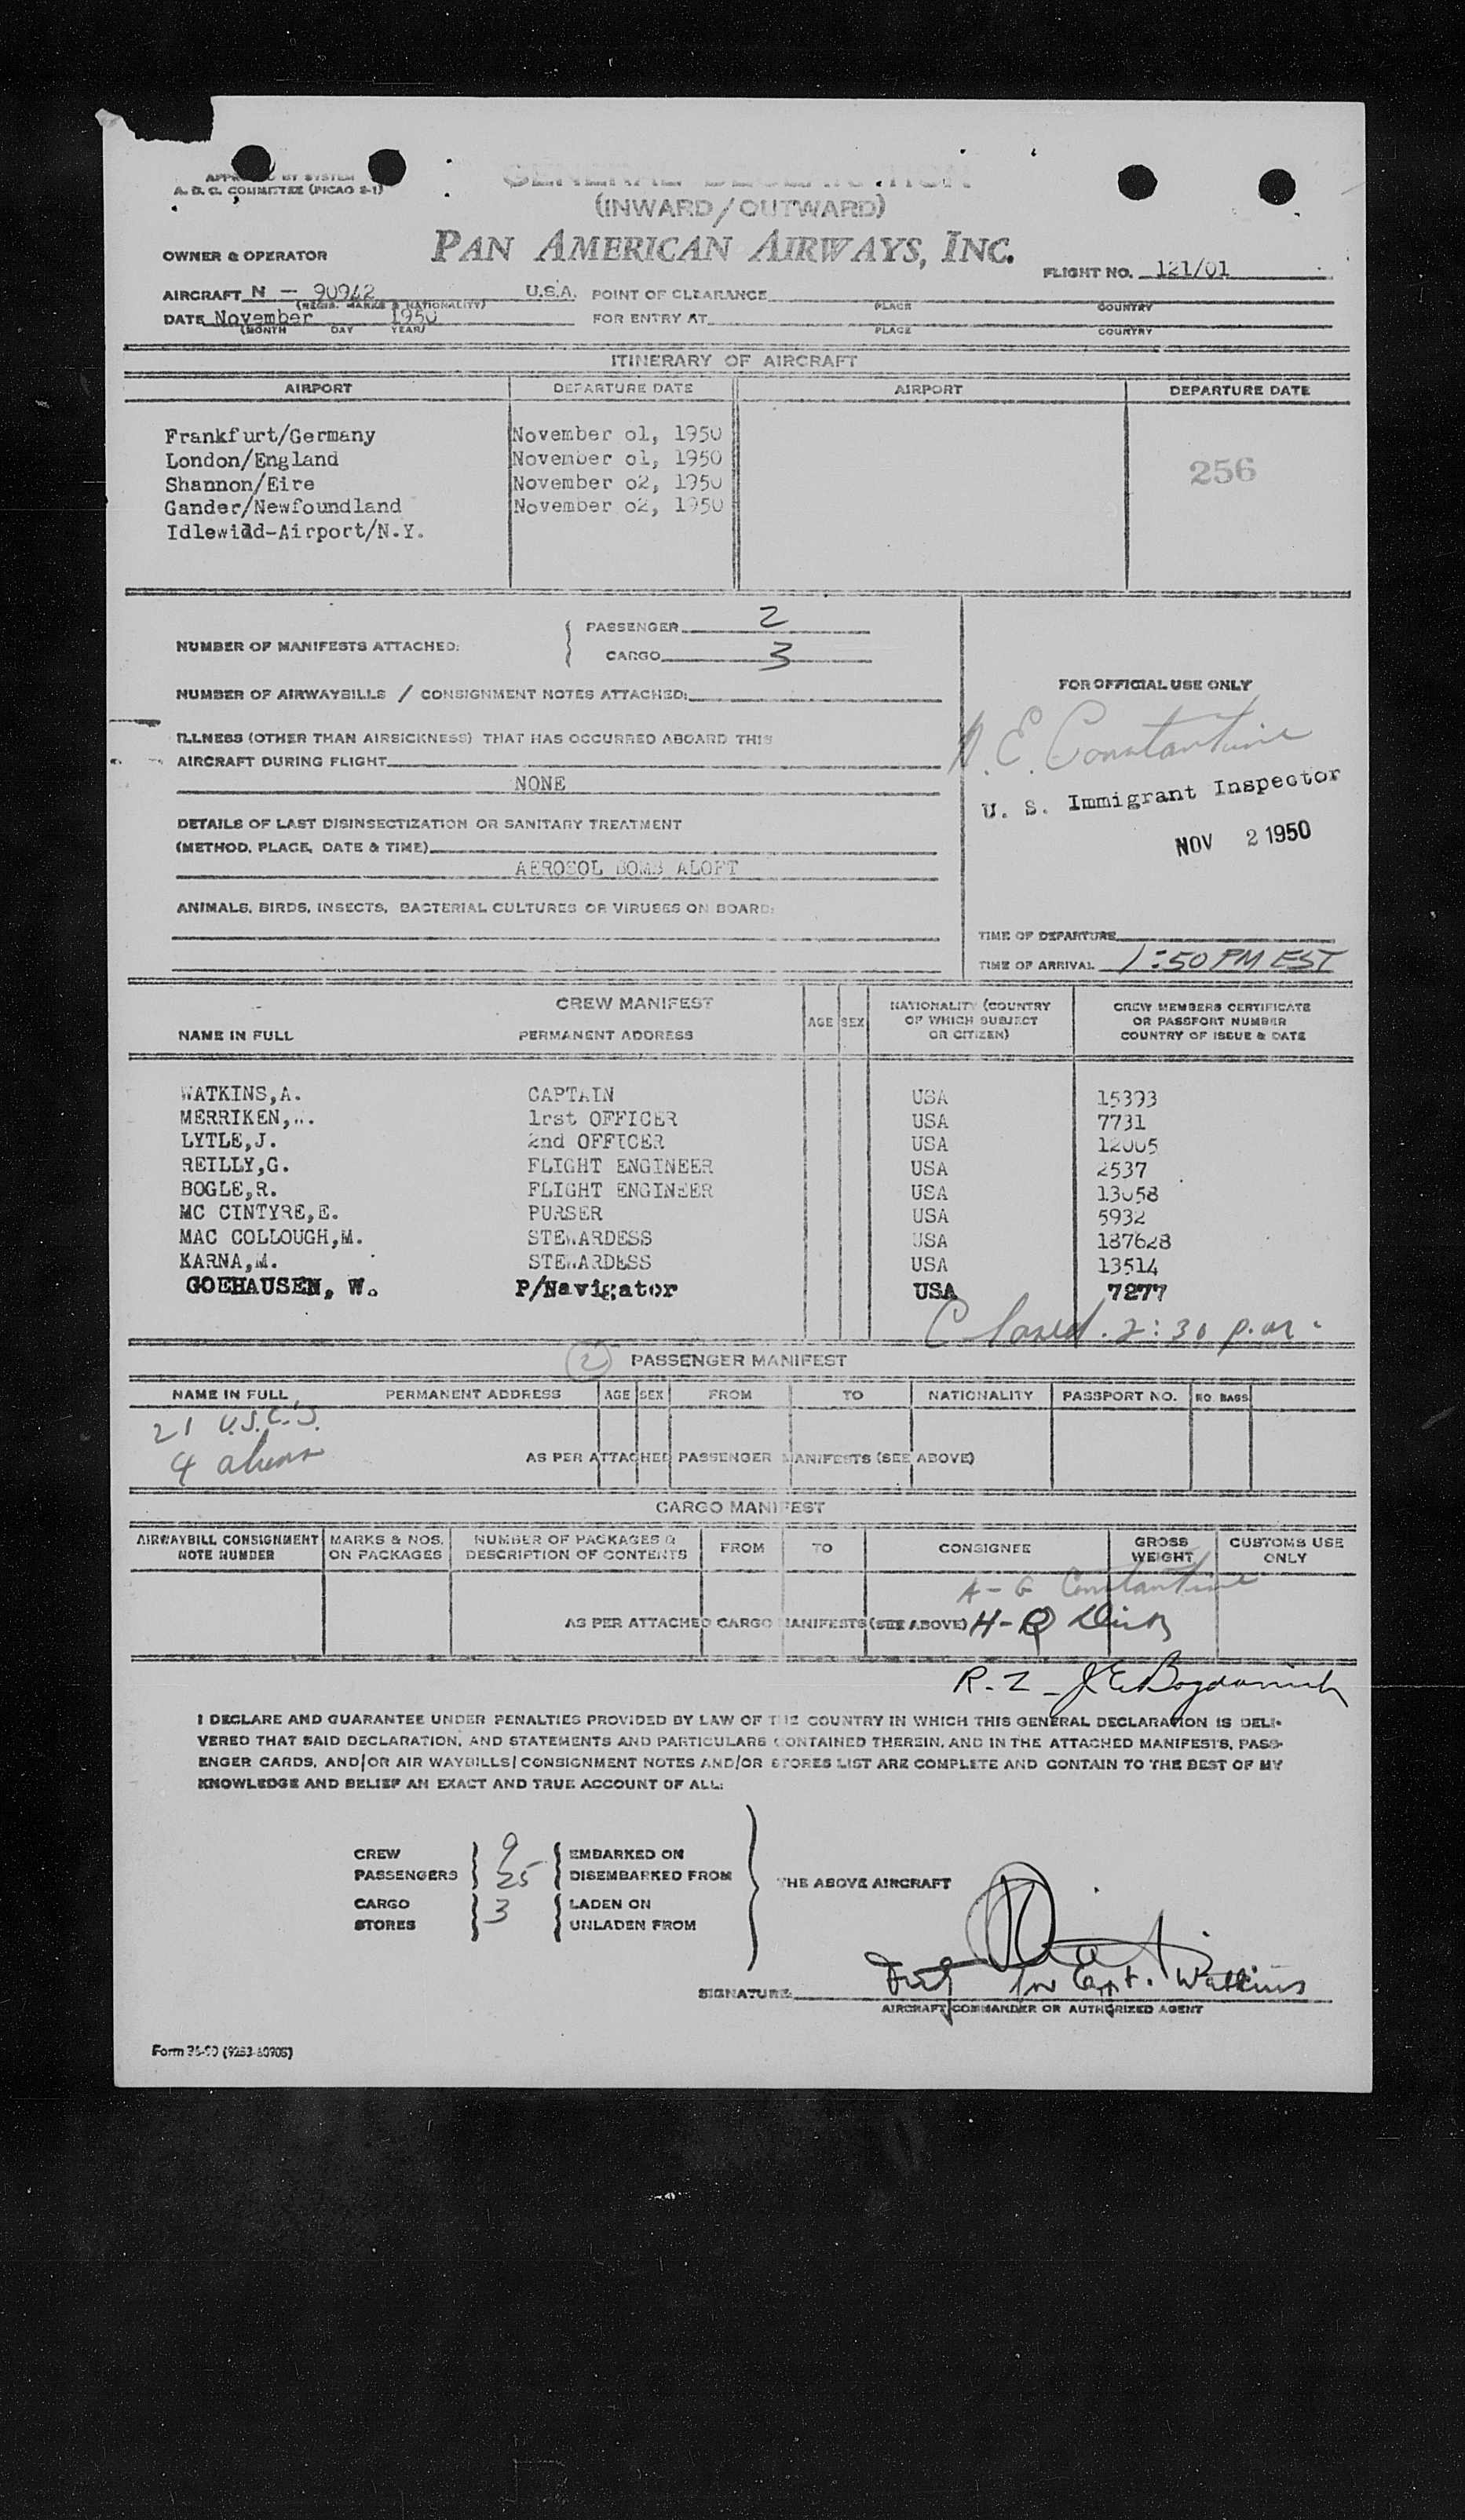 APPROVED BY SYSTEM
A. D. C. COMMITTEE (PICAO S-1)
GENERAL DECLARATION
(INWARD/OUTWARD)
OWNER & OPERATOR PAN AMERICAN AIRWAYS, INC.
FLIGHT NO. 121/01
AIRCRAFT N - 90942 U.S.A. POINT OF CLEARANCE
(REGIS. MARKS & NATIONALITY) PLACE COUNTRY
DATE November 1950 FOR ENTRY AT
(MONTH DAY YEAR) PLACE COUNTRY
ITINERARY OF AIRCRAFT
AIRPORT DEPARTURE DATE AIRPORT DEPARTURE DATE
Frankfurt/Germany November 01, 1950
London/England November 01, 1950
256
Shannon/Eire November 02, 1950
Gander/Newfoundland November 02, 1950
Idlewild-Airport/N.Y.
NUMBER OF MANIFESTS ATTACHED: PASSENGER 2
CARGO 3
NUMBER OF AIRWAYBILLS / CONSIGNMENT NOTES ATTACHED:
FOR OFFICIAL USE ONLY
ILLNESS (OTHER THAN AIRSICKNESS) THAT HAS OCCURRED ABOARD THIS
AIRCRAFT DURING FLIGHT
NONE
E. Constantine
U. S. Immigrant Inspector
NOV 2 1950
DETAILS OF LAST DISINSECTIZATION OR SANITARY TREATMENT
(METHOD, PLACE, DATE & TIME)
AEROSOL BOMB ALOFT
ANIMALS, BIRDS, INSECTS, BACTERIAL CULTURES OR VIRUSES ON BOARD:
TIME OF DEPARTURE
TIME OF ARRIVAL 1:50 PM EST
CREW MANIFEST
NAME IN FULL PERMANENT ADDRESS AGE SEX NATIONALITY (COUNTRY OF WHICH SUBJECT OR CITIZEN) CREW MEMBERS CERTIFICATE OR PASSPORT NUMBER COUNTRY OF ISSUE & DATE
WATKINS,A. CAPTAIN USA 15393
MERRIKEN, 1rst OFFICER USA 7731
LYTLE,J. 2nd OFFICER USA 12005
REILLY,G. FLIGHT ENGINEER USA 2537
BOGLE,R. FLIGHT ENGINEER USA 13058
MC CINTYRE,E. PURSER USA 5932
MAC COLLOUGH,M. STEWARDESS USA 187628
KARNA,M. STEWARDESS USA 13514
GOEHAUSEN, W. P/Navigator USA 7277
Closed. 2:30 p.m.
(2) PASSENGER MANIFEST
NAME IN FULL PERMANENT ADDRESS AGE SEX FROM TO NATIONALITY PASSPORT NO. NO. BAGS
21 U.S.C.'S.
4 aliens
AS PER ATTACHED PASSENGER MANIFESTS (SEE ABOVE)
CARGO MANIFEST
AIRWAYBILL CONSIGNMENT NOTE NUMBER MARKS & NOS. ON PACKAGES NUMBER OF PACKAGES & DESCRIPTION OF CONTENTS FROM TO CONSIGNEE GROSS WEIGHT CUSTOMS USE ONLY
A - G Constantine
AS PER ATTACHED CARGO MANIFESTS (SEE ABOVE) H - Q
R - Z - J E Bogdanich
I DECLARE AND GUARANTEE UNDER PENALTIES PROVIDED BY LAW OF THE COUNTRY IN WHICH THIS GENERAL DECLARATION IS DELI-
VERED THAT SAID DECLARATION, AND STATEMENTS AND PARTICULARS CONTAINED THEREIN, AND IN THE ATTACHED MANIFESTS, PASS-
ENGER CARDS, AND/OR AIR WAYBILLS/CONSIGNMENT NOTES AND/OR STORES LIST ARE COMPLETE AND CONTAIN TO THE BEST OF MY
KNOWLEDGE AND BELIEF AN EXACT AND TRUE ACCOUNT OF ALL:
CREW 9 EMBARKED ON
PASSENGERS 25 DISEMBARKED FROM
THE ABOVE AIRCRAFT
CARGO 3 LADEN ON
STORES UNLADEN FROM
SIGNATURE: for Capt. Watkins
AIRCRAFT COMMANDER OR AUTHORIZED AGENT
Form 36-90 (9253-60905)